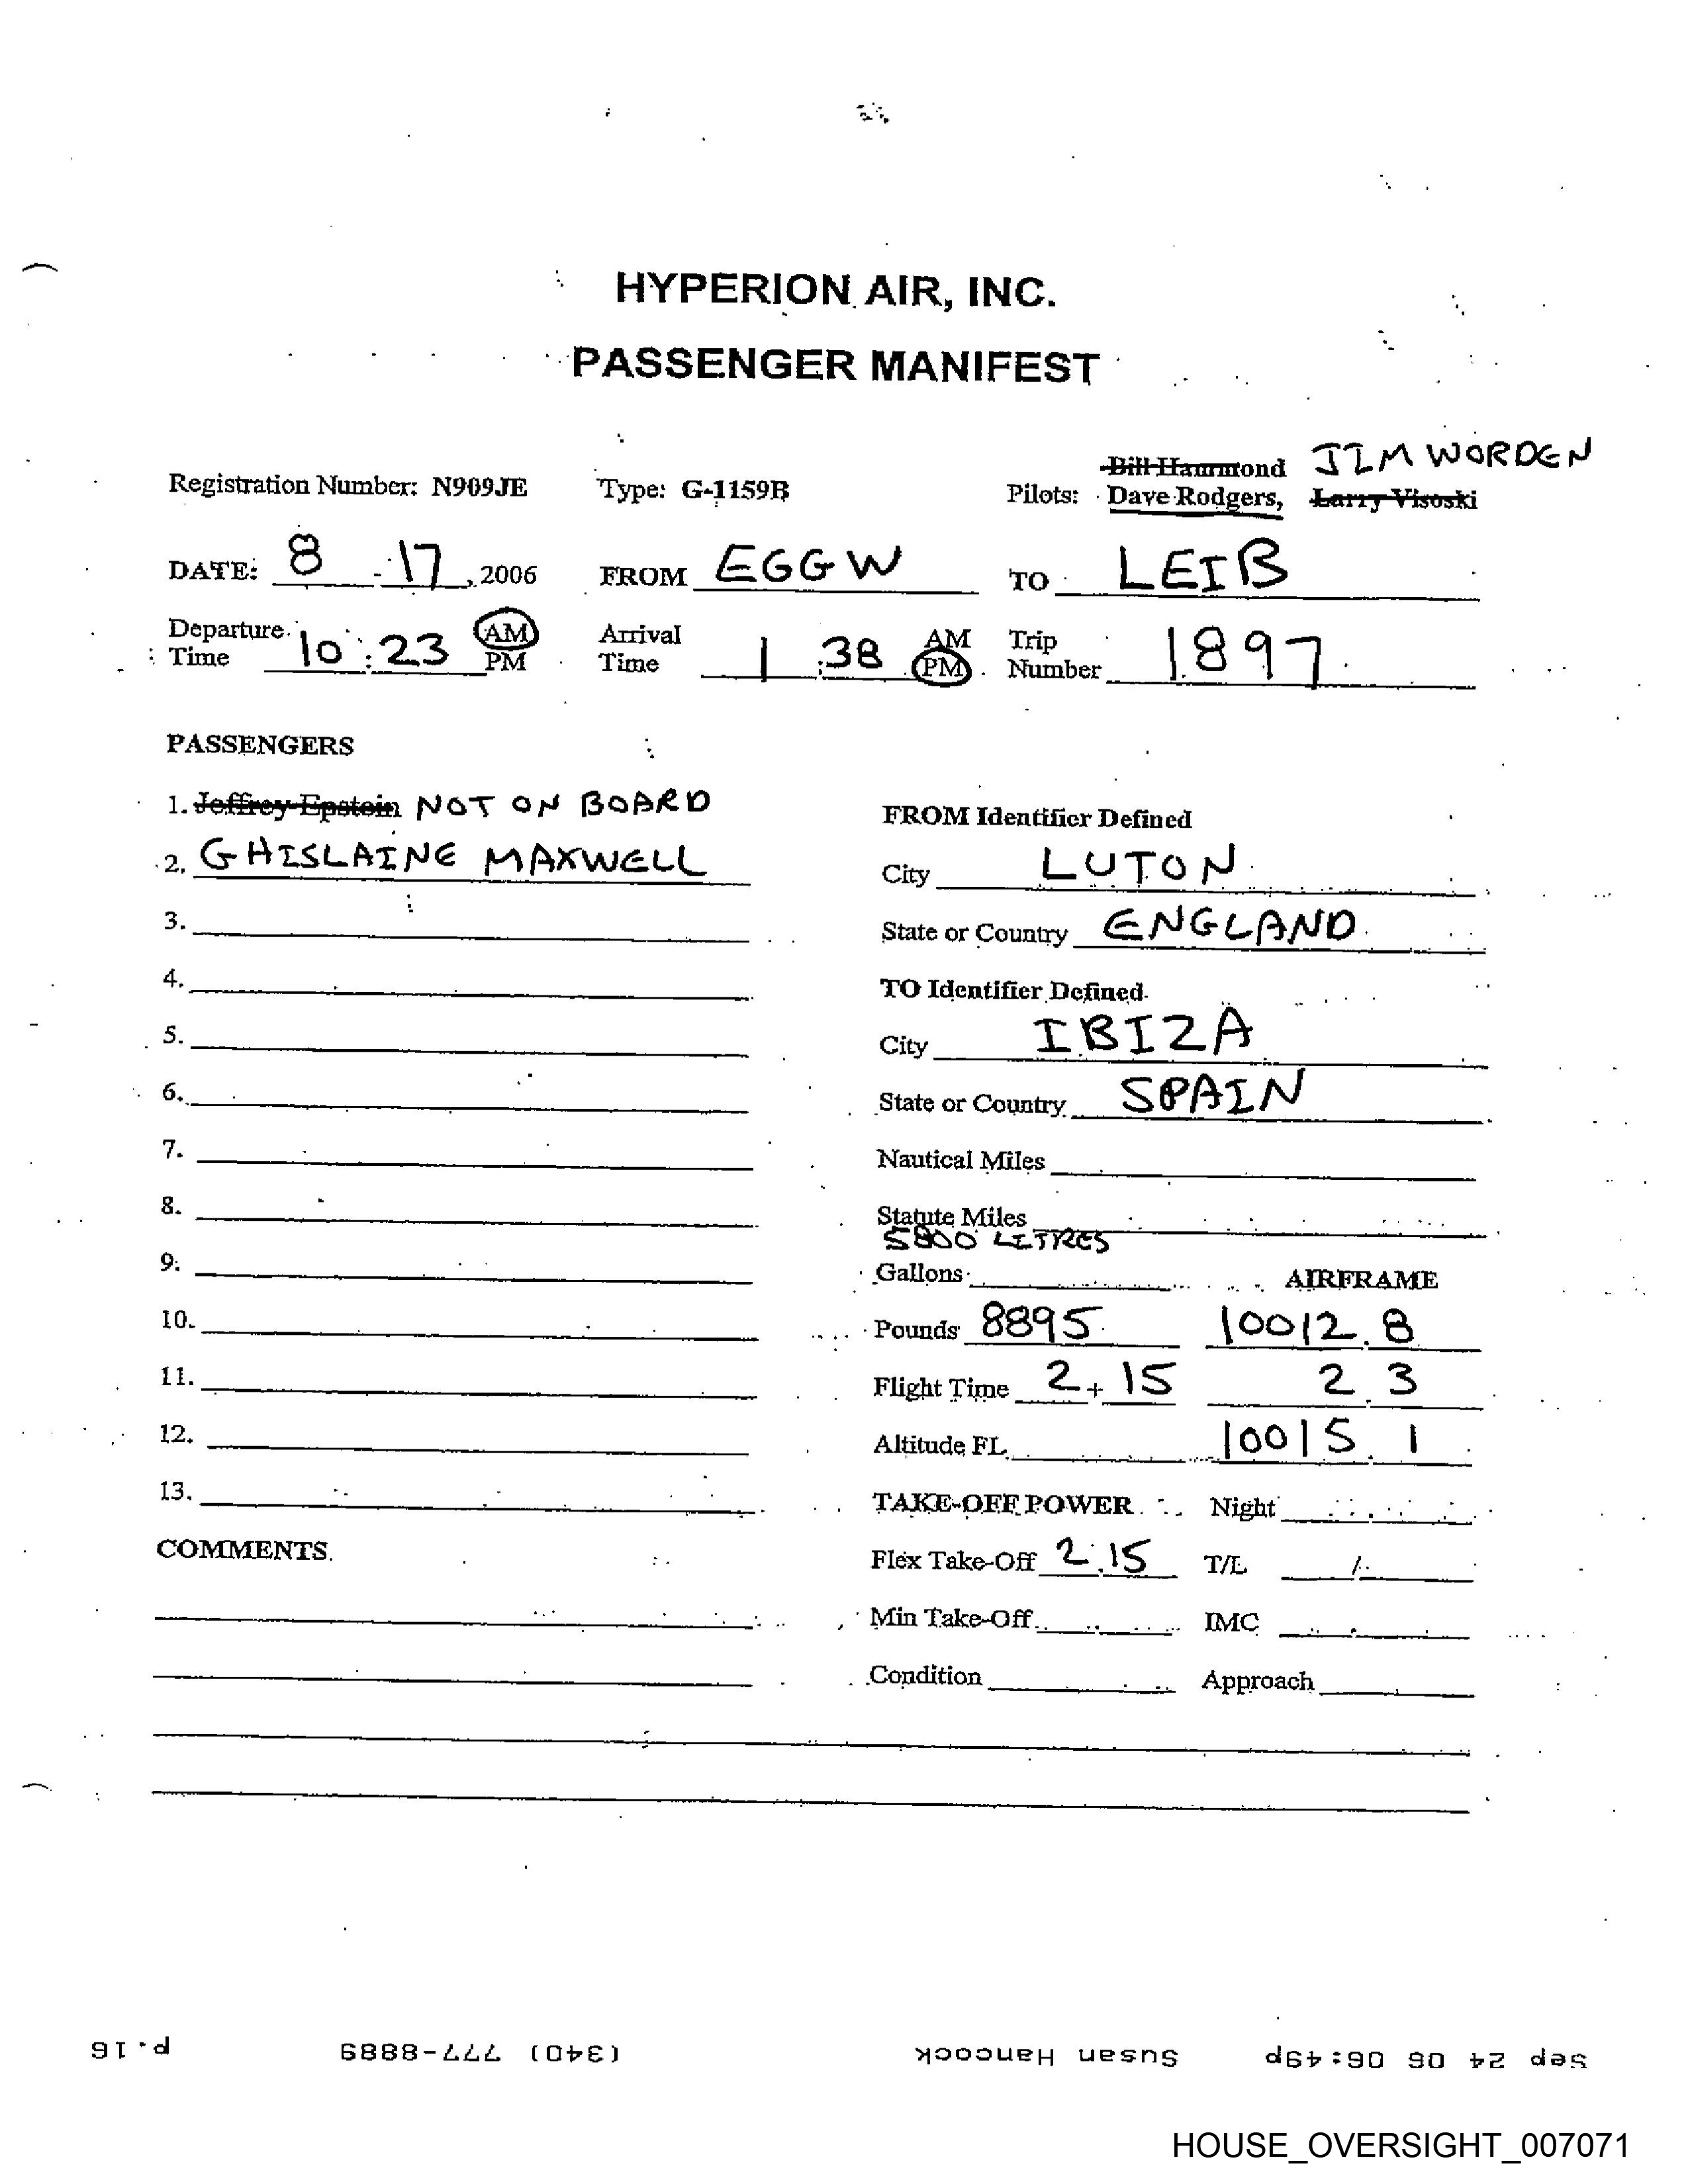 HYPERION AIR, INC.
PASSENGER MANIFEST
Bill Hammond JIM WORDEN
Registration Number: N909JE Type: G-1159B Pilots: Dave Rodgers, Larry Visoski
DATE: 8 - 17, 2006 FROM EGGW TO LEIB
Departure Time 10:23 AM PM Arrival Time 1:38 AM PM Trip Number 1897
PASSENGERS
1. Jeffrey Epstein NOT ON BOARD
2. GHISLAINE MAXWELL
3.
4.
5.
6.
7.
8.
9.
10.
11.
12.
13.
COMMENTS
FROM Identifier Defined
City LUTON
State or Country ENGLAND
TO Identifier Defined
City IBIZA
State or Country SPAIN
Nautical Miles
Statute Miles
5800 LITRES
Gallons AIRFRAME
Pounds 8895 10012.8
Flight Time 2+15 2.3
Altitude FL 10015.1
TAKE-OFF POWER Night
Flex Take-Off 2.15 T/L /
Min Take-Off IMC
Condition Approach
Sep 24 06 06:49p Susan Hancock (340) 777-8889 p.16
HOUSE_OVERSIGHT_007071